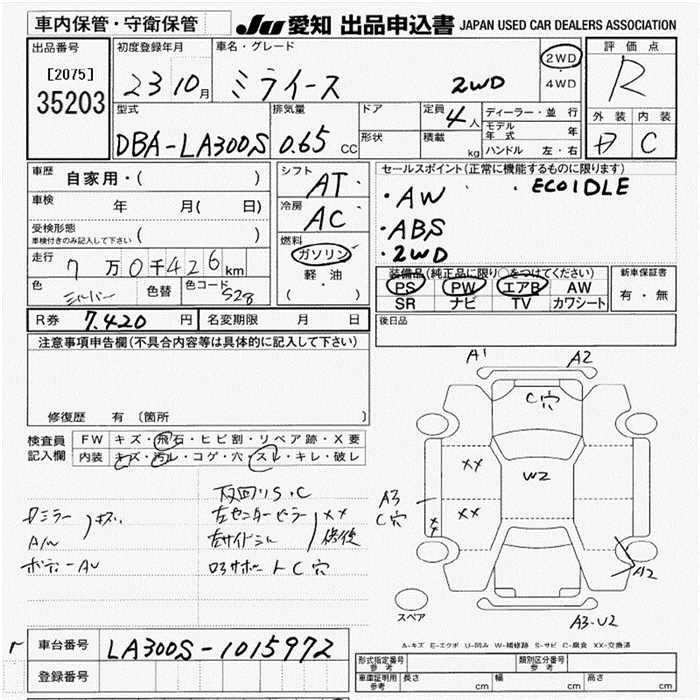 車内保管・守衛保管
JU 愛知 出品申込書 JAPAN USED CAR DEALERS ASSOCIATION
出品番号
[2075]
35203
初度登録年月
23 10月
車名・グレード
ミライース 2WD
2WD
・
4WD
評価点
R
外装 内装
C
型式
DBA-LA300S
排気量
0.65 CC
ドア
形状
定員
4人
積載
kg
ディーラー・並行
モデル年式 年
ハンドル 左・右
車歴
自家用・( )
車検
年 月( 日)
受検形態
車検付きのみ記入して下さい ( )
走行
7万0千426km
色
シルバー
色替
色コード
S28
シフト
AT
冷房
AC
燃料
ガソリン
軽・油
( ・ )
セールスポイント(正常に機能するものに限ります)
・AW ・ECOIDLE
・ABS
・2WD
装備品(純正品に限り○をつけてください)
PS PW エアB AW
SR ナビ TV カワシート
新車保証書
有・無
後日品
R券 7.420円
名変期限 月 日
注意事項申告欄(不具合内容等は具体的に記入して下さい)
修復歴 有 〔箇所
検査員
記入欄
FW キズ・飛石・ヒビ割・リペア跡・X要
内装 キズ・汚レ・コゲ・穴・スレ・キレ・破レ
左センターピラー XX
左サイドシル 修後
A/W
ボディーAU
サポートC穴
A1 A2
C穴
XX
W2
XX
A3
C穴
XX
A2
A3・U2
スペア
A-キズ E-エクボ U-凹み W-補修跡 S-サビ C-腐食 XX-交換済
車台番号 LA300S-1015972
登録番号
形式指定番号
参考
類別区分番号
参考
車庫証明用
参考
長さ cm 幅 cm 高さ cm